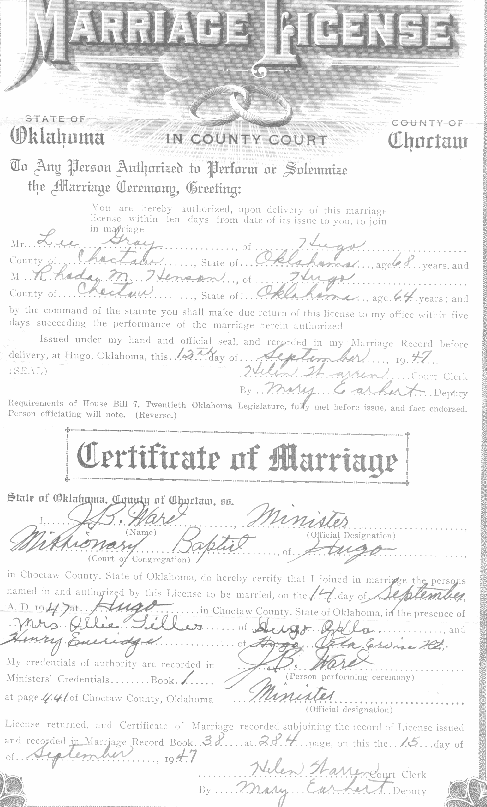 MARRIAGE LICENSE
STATE OF
Oklahoma
IN COUNTY COURT
COUNTY OF
Choctaw
To Any Person Authorized to Perform or Solemnize
the Marriage Ceremony, Greeting:
You are hereby authorized, upon delivery of this marriage
license within ten days from date of its issue to you, to join
in marriage
Mr. Lee Gray of Hugo
County of Choctaw, State of Oklahoma, age 68 years, and
M Rhoda M. Henson, of Hugo
County of Choctaw, State of Oklahoma age 64 years; and
by the command of the statute you shall make due return of this license to my office within five
days succeeding the performance of the marriage herein authorized.
Issued under my hand and official seal, and recorded in my Marriage Record before
delivery, at Hugo, Oklahoma, this 12th day of September, 1947
(SEAL) Helen Warren, Court Clerk
By Mary Earhert Deputy
Requirements of House Bill 7, Twentieth Oklahoma Legislature, fully met before issue, and fact endorsed.
Person officiating will note. (Reverse.)
Certificate of Marriage
State of Oklahoma, County of Choctaw, ss.
I, J.B. Ward, Minister
(Name) (Official Designation)
Missionary Baptist, of Hugo
(Court of Congregation)
in Choctaw County, State of Oklahoma, do hereby certify that I joined in marriage the persons
named in and authorized by this License to be married, on the 14 day of September,
A. D. 1947 at Hugo in Choctaw County, State of Oklahoma, in the presence of
Mrs Ollie Tiller of Hugo Okla and
Henry of Hugo, Okla
My credentials of authority are recorded in J.B. Ward
Ministers' Credentials Book 1 (Person performing ceremony)
at page 441 of Choctaw County, Oklahoma Minister
(Official designation)
License returned, and Certificate of Marriage recorded subjoining the record of License issued
and recorded in Marriage Record Book 38 at 284 page on this the 15 day of
of September 1947
Helen Warren Court Clerk
By Mary Earhert Deputy